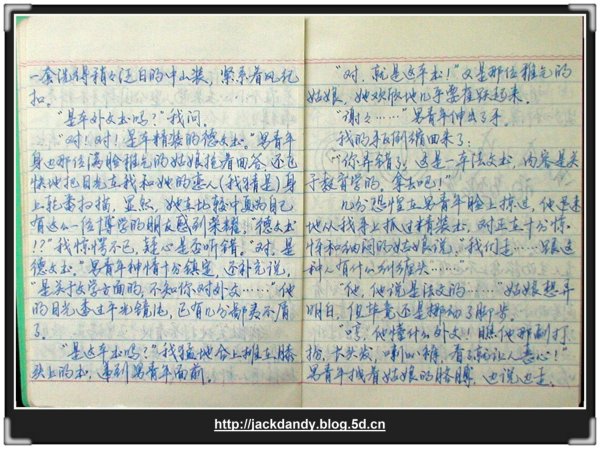 一套洗得稍々泛白的中山装，紧系着风纪
扣。
“是本外文书吗？”我问。
“对！对！是本精装的德文书。”男青年
身边那位满脸稚气的姑娘抢着回答，还飞
快地把目光在我和她的恋人（我猜是）身
上轮番扫描，显然，她在比较中真为自己
有这么一位博学的朋友感到荣耀。“德文书
！？”我愕愕不已，疑心是否听错。“对，是
德文书。”男青年神情十分镇定，还补充说，
“是关于文学方面的，不知你对外文……”他
的目光透过平光镜片，已有几分鄙夷不屑
了。
“是这本书吗？”我猛地合上摊在膝
头上的书，递到男青年面前。
“对，就是这本书！”又是那位稚气的
姑娘，她欢欣地几乎要雀跃起来。
“谢々……”男青年伸出了手。
我的手反倒缩回来了：
“你弄错了，这是一本法文书，内容是关
于教育学的。拿去吧！”
几分恐惶在男青年脸上掠过，他迅速
地从我手上抓过精装书，对正在十分惊
怀和纳闷的姑娘说，“我们走……跟这
种人有什么纠缠头……”
“他，他说是法文的……”姑娘想弄
明白，但毕竟还是挪动了脚步。
“哼，他懂什么外文！瞧他那副打
扮，长头发，喇叭裤，看了就让人恶心！”
男青年拽着姑娘的胳膊，边说边走。
http://jackdandy.blog.5d.cn